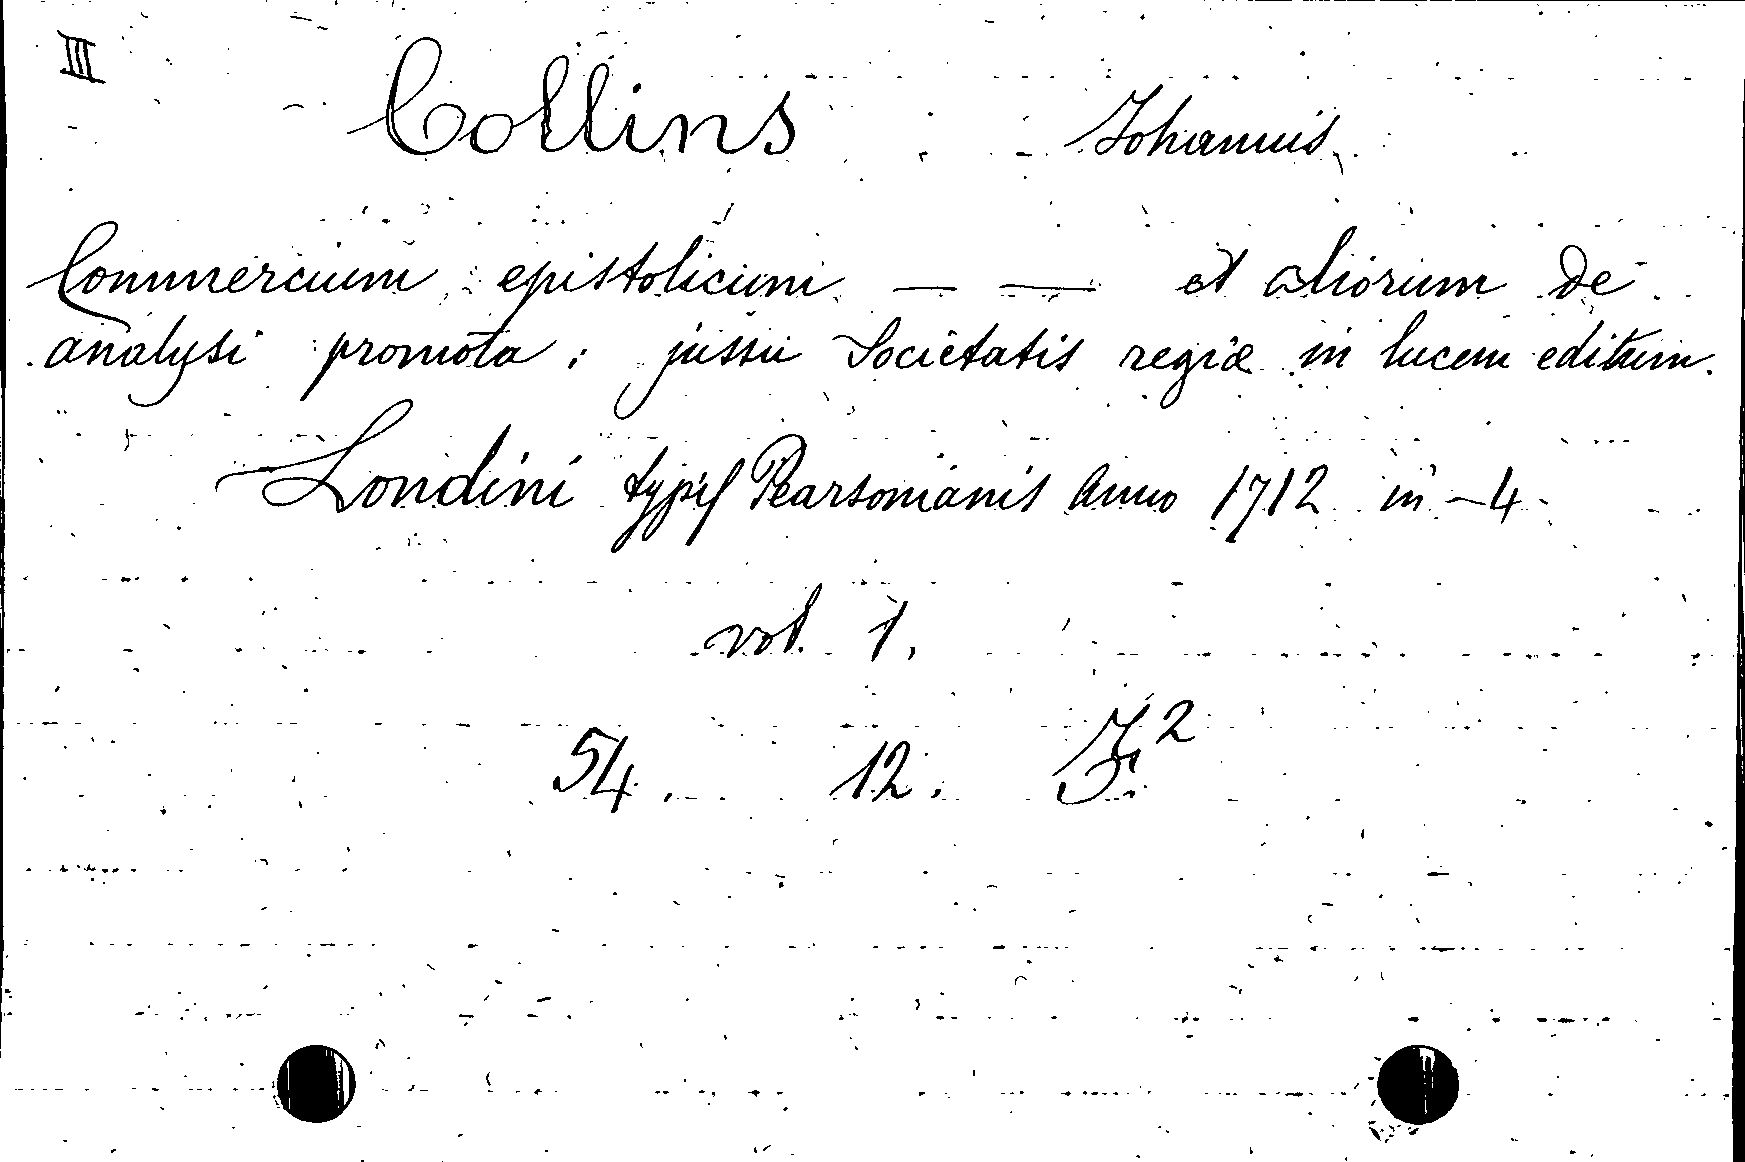 III
Collins Johannis
Commercium epistolicum — — et aliorum de
analysi promota : jussu Societatis regiæ in lucem editum.
Londini typis Pearsonianis Anno 1712 in -4
vol. 1.
54. 12. F.2